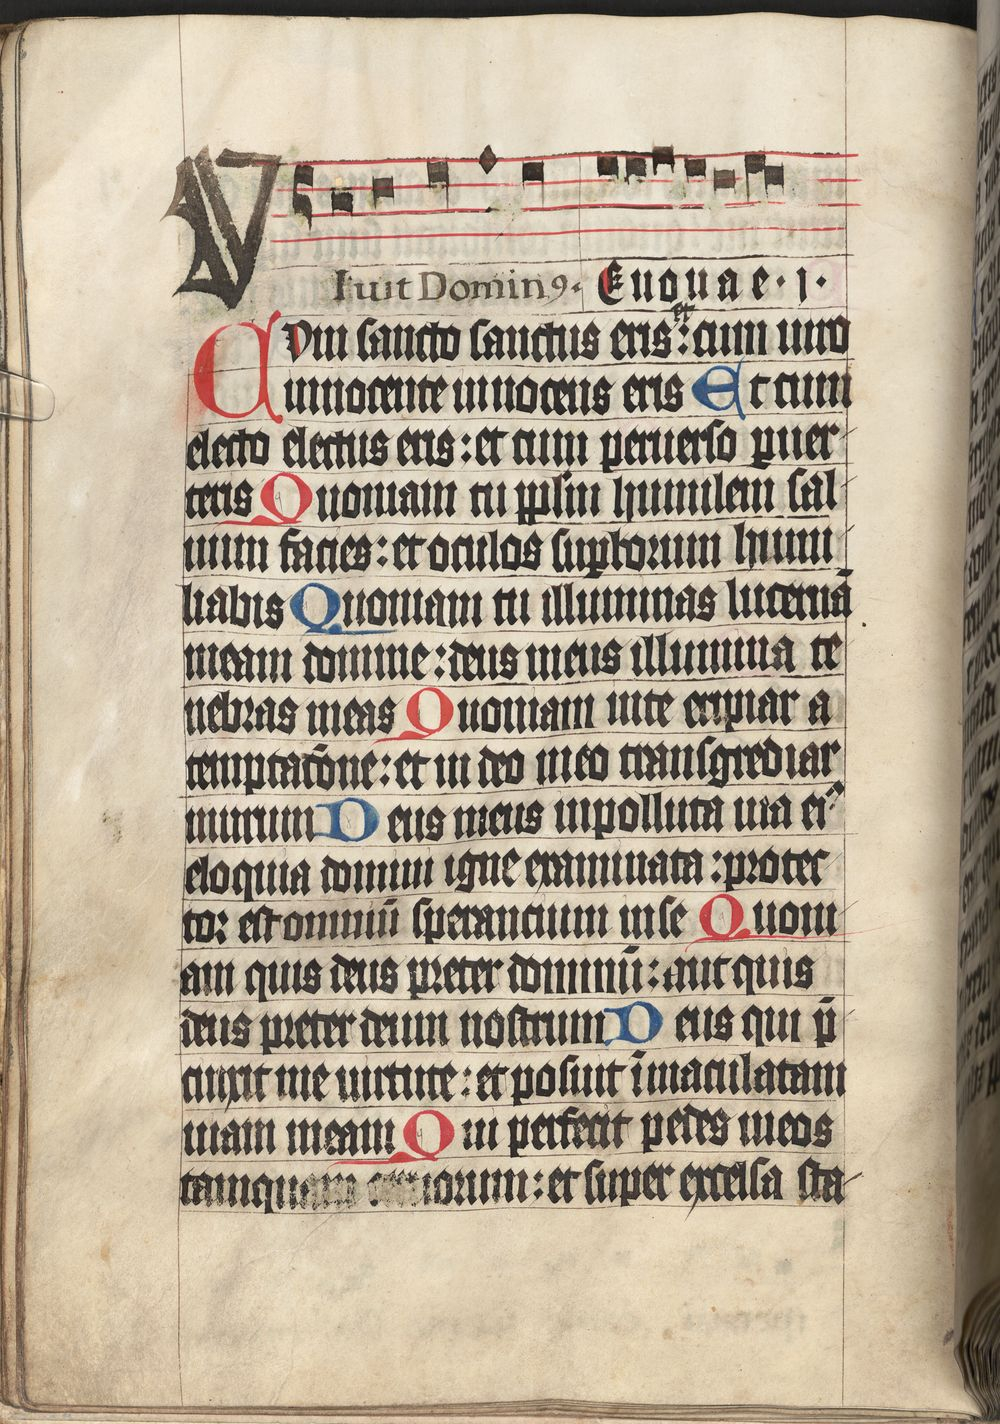 Viuit Domin9. Euouae · j ·
CVm sancto sanctus eris: et cum uiro
innocente innocens eris Et cum
electo electus eris: et cum peruerso puer
teris Quoniam tu pplm humilem sal
uum facies: et oculos supborum humi
liabis Quoniam tu illuminas lucernā
meam domine: deus meus illumina te
nebras meas Quoniam in te eripiar a
temptacōne: et in deo meo transgrediar
murum Deus meus inpolluta uia ei9
eloquia domini igne examinata: protec
tor est omniū sperancium in se Quoni
am quis deus preter dominū: aut quis
deus preter deum nostrum Deus qui p̄
cinxit me uirtute: et posuit īmaculatam
uiam meam Qui perfecit pedes meos
tamquam ceruorum: et super excelsa sta